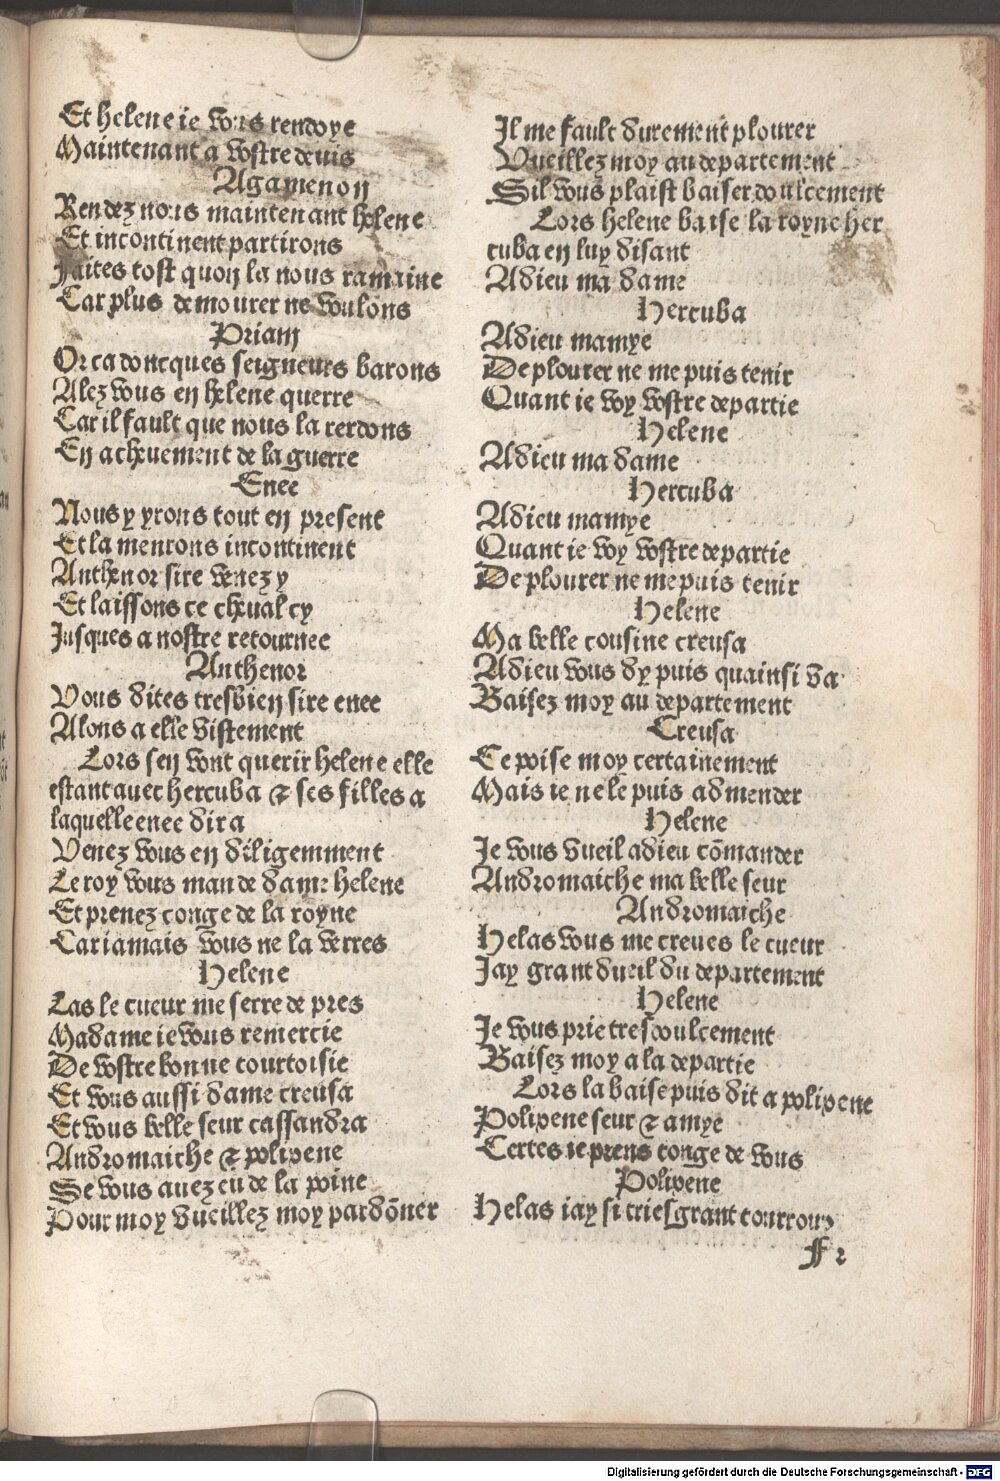 Et helene ie vous rendoye
Maintenant a vostre deuis
Agamenon
Rendez nous maintenant helene
Et incontinent partirons
Faites tost quon la nous ramaine
Car plus demourer ne voulons
Priam
Or ca doncques seigneurs barons
Alez vous en helene querre
Car il fault que nous la rerdons
En acheuement de la guerre
Enee
Nous y yrons tout en present
Et la menrons incontinent
Anthenor sire venez y
Et laissons ce cheual cy
Jusques a nostre retournee
Anthenor
Vous dites tresbien sire enee
Alons a elle vistement
Lors sen vont querir helene elle
estant auec hercuba & ses filles a
laquelle enee dira
Venez vous en diligemment
Le roy vous mande dame helene
Et prenez conge de la royne
Car iamais vous ne la verres
Helene
Las le cueur me serre de pres
Madame ie vous remercie
De vostre bonne courtoisie
Et vous aussi dame creusa
Et vous belle seur cassandra
Andromaiche & polixene
Se vous auez eu de la poine
Pour moy vueillez moy pardōner
Il me fault durement plourer
Vueillez moy au departement
Sil vous plaist baiser doulcement
Lors helene baise la royne her
cuba en luy disant
Adieu ma dame
Hercuba
Adieu mamye
De plourer ne me puis tenir
Quant ie voy vostre departie
Helene
Adieu ma dame
Hercuba
Adieu mamye
Quant ie voy vostre departie
De plourer ne me puis tenir
Helene
Ma belle cousine creusa
Adieu vous dy puis quainsi va
Baisez moy au departement
Creusa
Ce poise moy certainement
Mais ie ne le puis admender
Helene
Je vous vueil adieu cōmander
Andromaiche ma belle seur
Andromaiche
Helas vous me creues le cueur
Jay grant dueil du departement
Helene
Je vous prie tresdoulcement
Baisez moy a la departie
Lors la baise puis dit a polixene
Polixene seur & amye
Certes ie prens conge de vous
Polixene
Helas iay si tresgrant courroux
ff 2
Digitalisierung gefördert durch die Deutsche Forschungsgemeinschaft - DFG